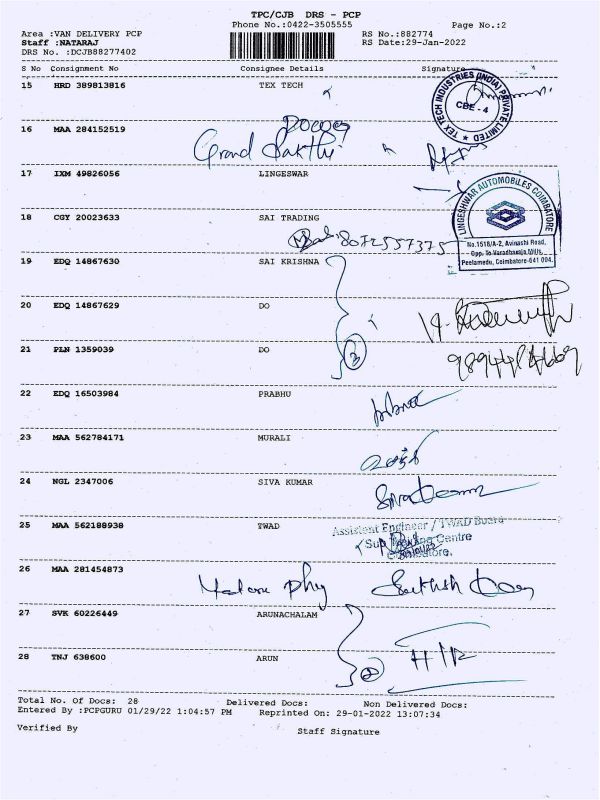 TPC/CJB DRS - PCP
Phone No.:0422-3505555 Page No.:2
Area :VAN DELIVERY PCP RS No.:882774
Staff :NATARAJ RS Date:29-Jan-2022
DRS No. :DCJB88277402
S No Consignment No Consignee Details Signature
15 HRD 389813816 TEX TECH
TEX TECH INDUSTRIES (INDIA) PRIVATE LIMITED
CBE - 4
16 MAA 284152519
Grand Sakthi
17 IXM 49826056 LINGESWAR
LINGESHWAR AUTOMOBILES COIMBATORE
No.1518/A-2, Avinashi Road,
Opp. To Varadharaja Mills,
Peelamedu, Coimbatore-641 004.
18 CGY 20023633 SAI TRADING
8072557375
19 EDQ 14867630 SAI KRISHNA
20 EDQ 14867629 DO
21 PLN 1359039 DO
3
22 EDQ 16503984 PRABHU
23 MAA 562784171 MURALI
24 NGL 2347006 SIVA KUMAR
25 MAA 562188938 TWAD
Assistant Engineer / TWAD Board
Centre
Coimbatore.
26 MAA 281454873
27 SVK 60226449 ARUNACHALAM
28 TNJ 638600 ARUN
2
Total No. Of Docs: 28 Delivered Docs: Non Delivered Docs:
Entered By :PCPGURU 01/29/22 1:04:57 PM Reprinted On: 29-01-2022 13:07:34
Verified By Staff Signature